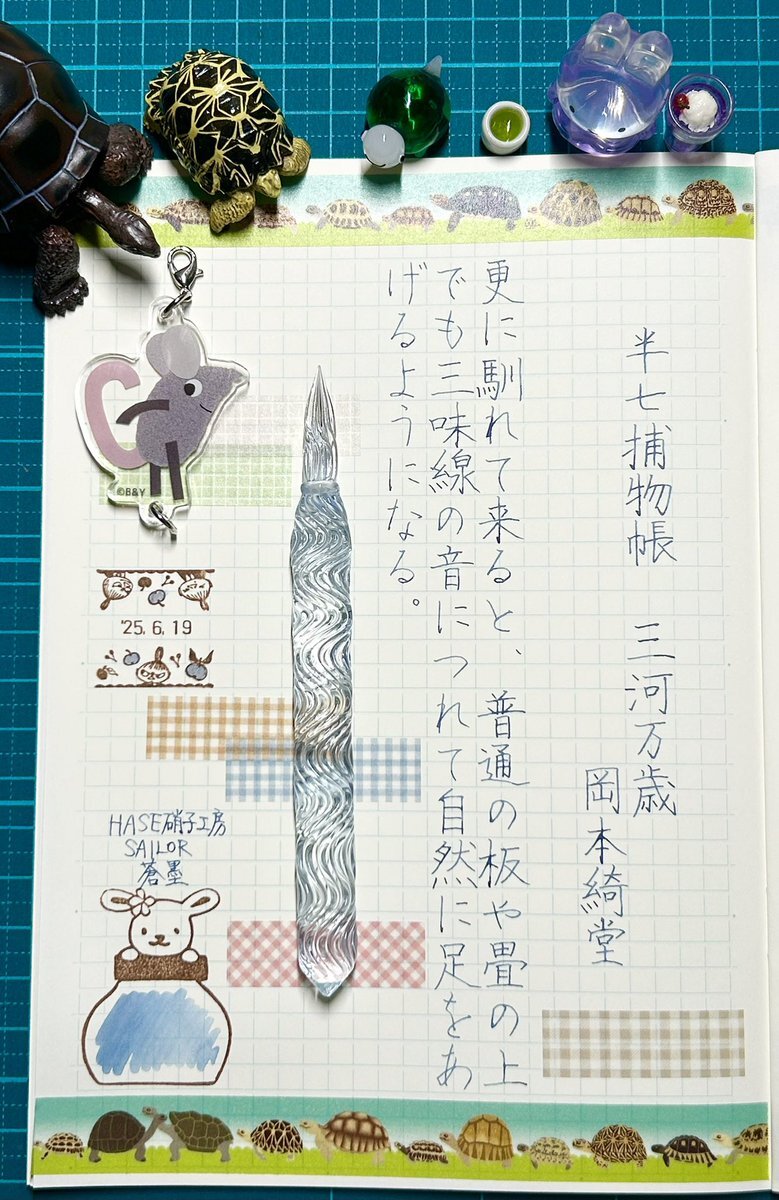 半七捕物帳 三河万歳
岡本綺堂
更に馴れて来ると、普通の板や畳の上
でも三味線の音につれて自然に足をあ
げるようになる。
©B&Y
'25.6.19
HASE硝子工房
SAILOR
蒼墨